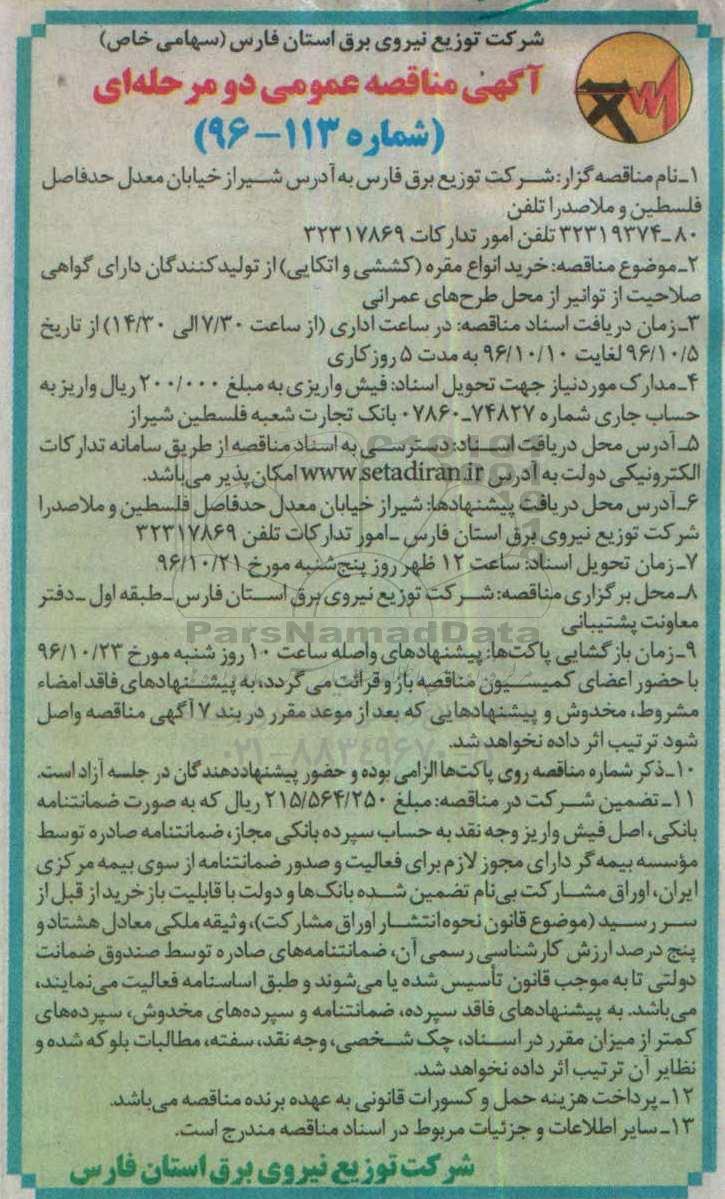 شرکت توزیع نیروی برق استان فارس (سهامی خاص)
آگهی مناقصه عمومی دو مرحله‌ای
(شماره ۱۱۳-۹۶)
۱ـ نام مناقصه گزار: شرکت توزیع برق فارس به آدرس شیراز خیابان معدل حدفاصل
فلسطین و ملاصدرا تلفن
۸۰ـ۳۲۳۱۹۳۷۴ تلفن امور تدارکات ۳۲۳۱۷۸۶۹
۲ـ موضوع مناقصه: خرید انواع مقره (کششی و اتکایی) از تولیدکنندگان دارای گواهی
صلاحیت از توانیر از محل طرح‌های عمرانی
۳ـ زمان دریافت اسناد مناقصه: در ساعت اداری (از ساعت ۷/۳۰ الی ۱۴/۳۰) از تاریخ
۹۶/۱۰/۵ لغایت ۹۶/۱۰/۱۰ به مدت ۵ روز کاری
۴ـ مدارک موردنیاز جهت تحویل اسناد: فیش واریزی به مبلغ ۲۰۰/۰۰۰ ریال واریز به
حساب جاری شماره ۷۴۸۲۷ـ۰۷۸۶۰ بانک تجارت شعبه فلسطین شیراز
۵ـ آدرس محل دریافت اسناد: دسترسی به اسناد مناقصه از طریق سامانه تدارکات
الکترونیکی دولت به آدرس www.setadiran.ir امکان‌پذیر می‌باشد.
۶ـ آدرس محل دریافت پیشنهادها: شیراز خیابان معدل حدفاصل فلسطین و ملاصدرا
شرکت توزیع نیروی برق استان فارس ـ امور تدارکات تلفن ۳۲۳۱۷۸۶۹
۷ـ زمان تحویل اسناد: ساعت ۱۲ ظهر روز پنج‌شنبه مورخ ۹۶/۱۰/۲۱
۸ـ محل برگزاری مناقصه: شرکت توزیع نیروی برق استان فارس ـ طبقه اول ـ دفتر
معاونت پشتیبانی
ParsNamadData
۹ـ زمان بازگشایی پاکت‌ها: پیشنهادهای واصله ساعت ۱۰ روز شنبه مورخ ۹۶/۱۰/۲۳
با حضور اعضای کمیسیون مناقصه باز و قرائت می گردد، به پیشنهادهای فاقد امضاء
مشروط، مخدوش و پیشنهادهایی که بعد از موعد مقرر در بند ۷ آگهی مناقصه واصل
شود ترتیب اثر داده نخواهد شد.
۰۲۱-۸۸۳۴۹۶۷۰
۱۰ـ ذکر شماره مناقصه روی پاکت‌ها الزامی بوده و حضور پیشنهاددهندگان در جلسه آزاد است.
۱۱ـ تضمین شرکت در مناقصه: مبلغ ۲۱۵/۵۶۴/۲۵۰ ریال که به صورت ضمانتنامه
بانکی، اصل فیش واریز وجه نقد به حساب سپرده بانکی مجاز، ضمانتنامه صادره توسط
مؤسسه بیمه‌گر دارای مجوز لازم برای فعالیت و صدور ضمانتنامه از سوی بیمه مرکزی
ایران، اوراق مشارکت بی‌نام تضمین شده بانک‌ها و دولت با قابلیت بازخرید از قبل از
سررسید (موضوع قانون نحوه انتشار اوراق مشارکت)، وثیقه ملکی معادل هشتاد و
پنج درصد ارزش کارشناسی رسمی آن، ضمانتنامه‌های صادره توسط صندوق ضمانت
دولتی تا به موجب قانون تأسیس شده یا می‌شوند و طبق اساسنامه فعالیت می‌نمایند،
می‌باشد. به پیشنهادهای فاقد سپرده، ضمانتنامه و سپرده‌های مخدوش، سپرده‌های
کمتر از میزان مقرر در اسناد، چک شخصی، وجه نقد، سفته، مطالبات بلوکه شده و
نظایر آن ترتیب اثر داده نخواهد شد.
۱۲ـ پرداخت هزینه حمل و کسورات قانونی به عهده برنده مناقصه می‌باشد.
۱۳ـ سایر اطلاعات و جزئیات مربوط در اسناد مناقصه مندرج است.
شرکت توزیع نیروی برق استان فارس